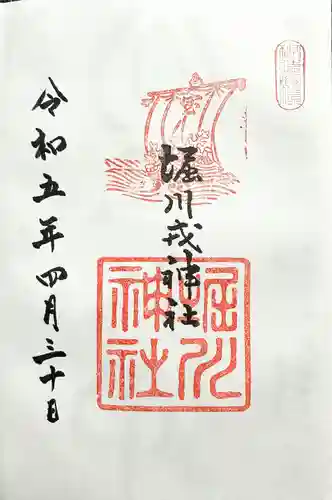 堀川戎神社
堀川
神社
令和五年四月三十日